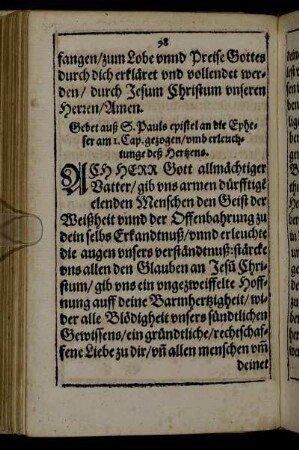 98
fangen/zum Lobe vnnd Preise Gottes
durch dich erkläret vnd vollendet wer-
den/ durch Jesum Christum vnseren
Herren/Amen.
Gebet auß S. Pauls epistel an die Ephe-
ser am 1. Cap. gezogen/vmb erleuch-
tunge deß Hertzens.
ACH HERR Gott allmächtiger
Vatter/gib vns armen dürfftigē
elenden Menschen den Geist der
Weißheit vnnd der Offenbahrung zu
dein selbs Erkandtnuß/vnnd erleuchte
die augen vnsers verständtnuß:stärcke
vns allen den Glauben an Jesū Chri-
stum/ gib vns ein vngezweiffelte Hoff-
nung auff deine Barmhertzigkeit/ wi-
der alle Blödigheit vnsers sündtlichen
Gewissens/ein gründtliche/rechtschaf-
fene Liebe zu dir/vñ allen menschen vm̄
deinet